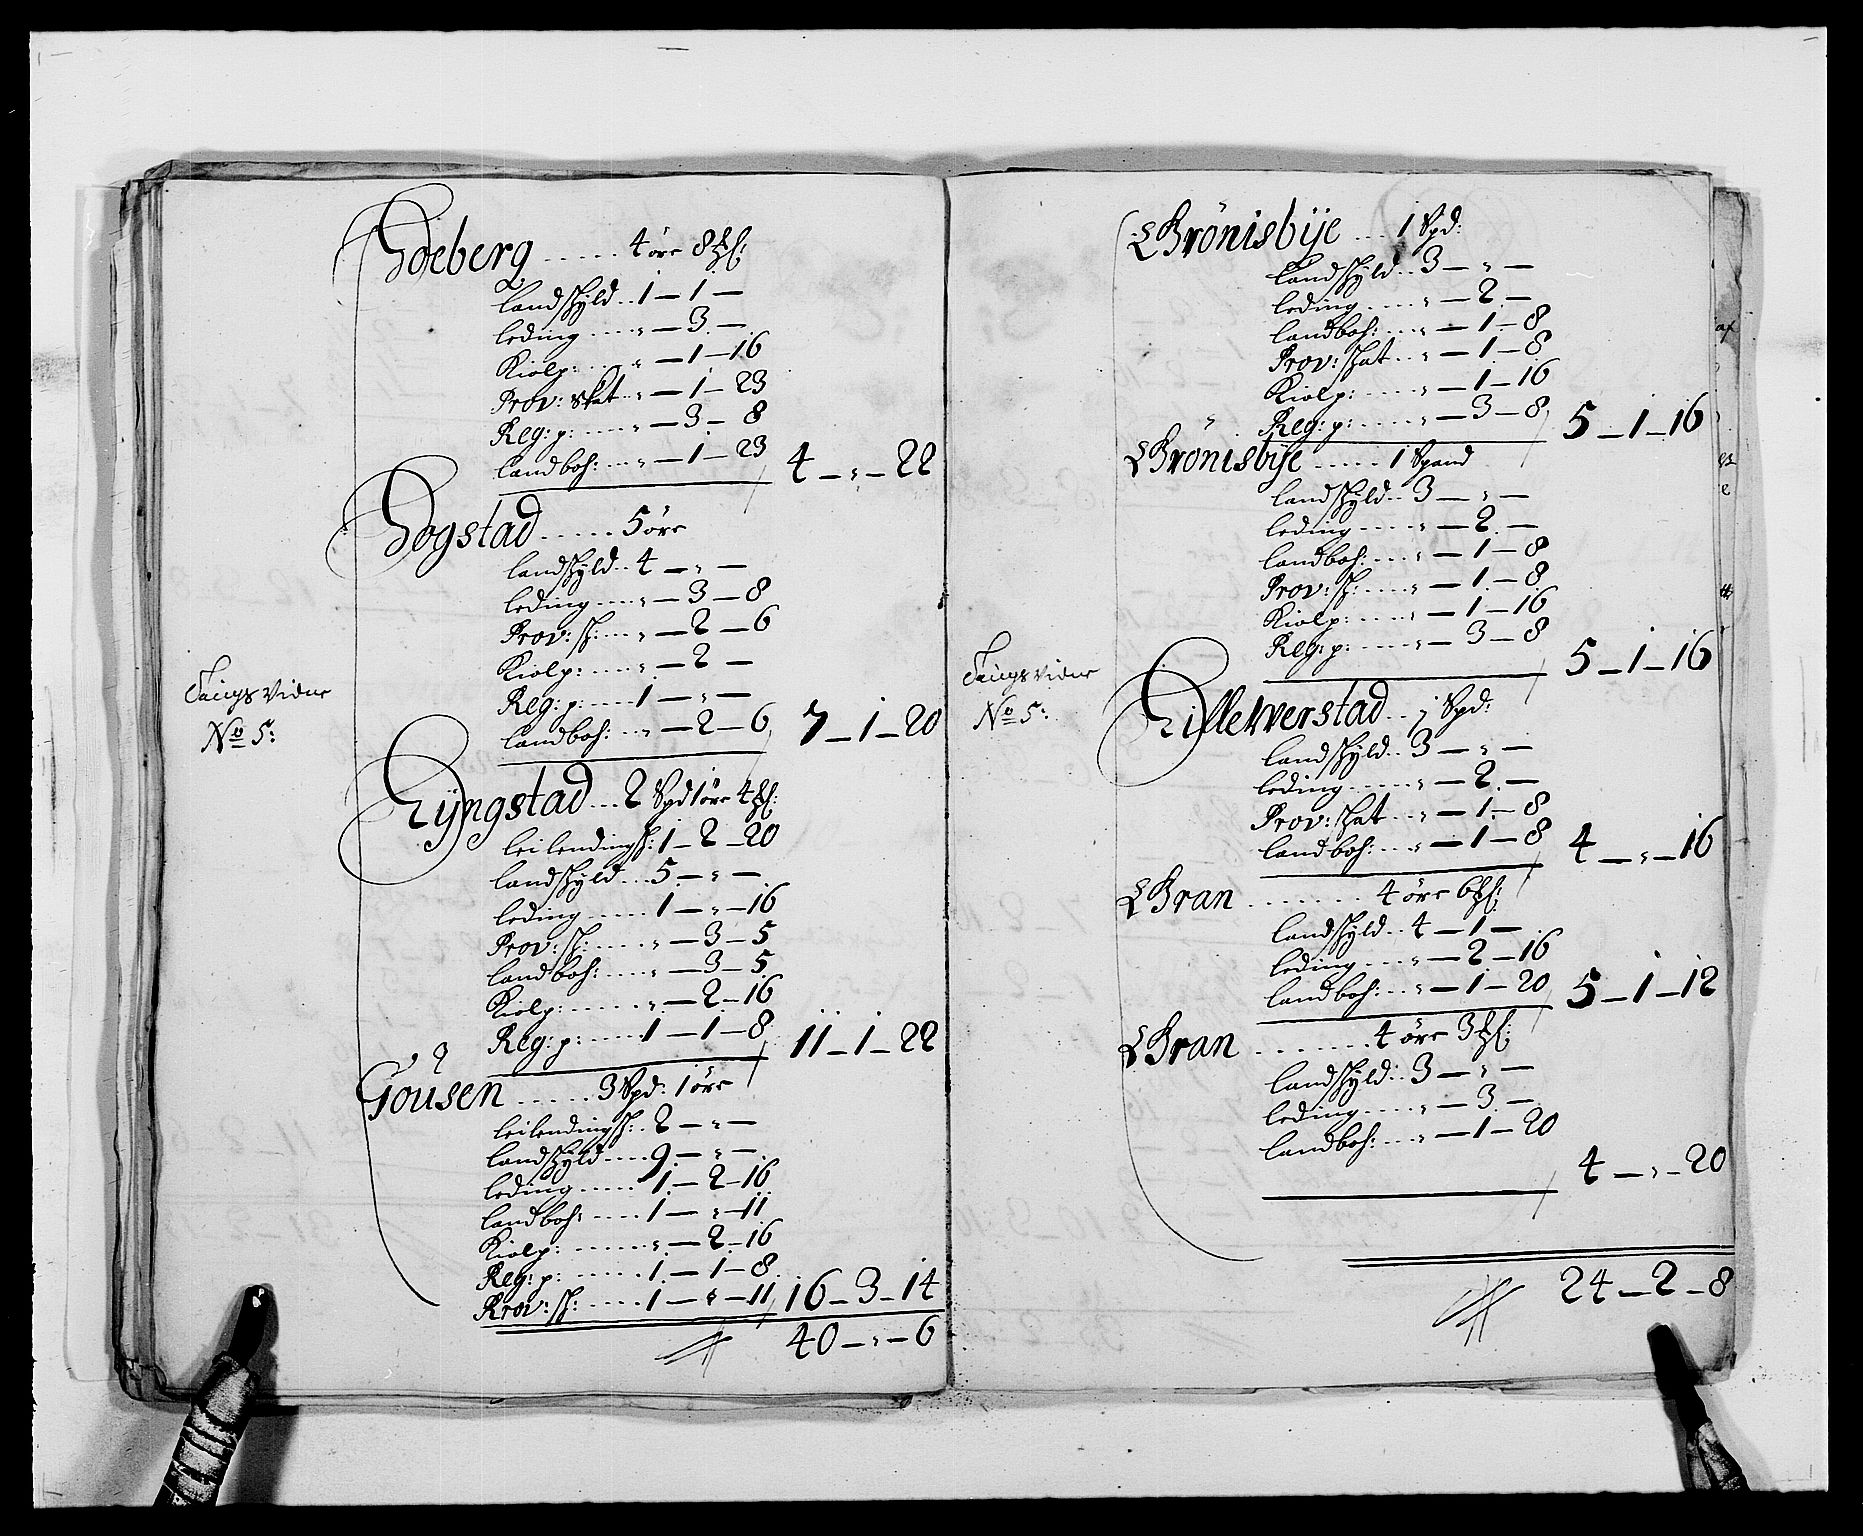 Hoeberg ..... 4 øre 8 
landskyld .. 1 – 1 –
leding .... „ – 3 –
Kiolp: .... „ – 1 – 16
Prov: skat .. „ – 1 – 23
Reg: p: .... „ – 3 – 8
landboh: ... „ – 1 – 23 4 – „ – 22
Hogstad ..... 5 øre
landskyld .. 4 – „ –
leding .... „ – 3 – 8
Prov: sk: ... „ – 2 – 6
Kiolp: .... „ – 2 –
Reg: p: .... 1 – „ –
landboh: .. „ – 2 – 6 7 – 1 – 20
Tings Vidne
No 5:
Ryngstad ... 2 Spd 1 øre 4 
leilending sk: 1 – 2 – 20
landskyld ... 5 – „ –
leding ..... 1 – „ – 16
Prov: sk: .... „ – 3 – 5
landboh: .... „ – 3 – 5
Kiolp: ..... „ – 2 – 16
Reg: p: .... 1 – 1 – 8 11 – 1 – 22
Gousen ..... 3 Spd: 1 øre
leilending sk: .. 2 – „ –
landskyld .... 9 – „ –
leding ..... 1 – 2 – 16
landboh: .... 1 – „ – 11
Kiolp: ...... „ – 2 – 16
Reg: p: ..... 1 – 1 – 8
Prov: sk: .... 1 – „ – 11 16 – 3 – 14
40 – „ – 6
Brönisbÿe ... 1 Spd:
landskyld .. 3 – „ –
leding .... „ – 2 –
landboh: ... „ – 1 – 8
Prov: skat .. „ – 1 – 8
Kiolp: .... „ – 1 – 16
Reg: p: .... „ – 3 – 8 5 – 1 – 16
Brönisbÿe ..... 1 Spand
landskyld .. 3 – „ –
leding .... „ – 2 –
landboh: ... „ – 1 – 8
Prov: sk: .... „ – 1 – 8
Kiolp: .... „ – 1 – 16
Reg: p: .... „ – 3 – 8 5 – 1 – 16
Tings Vidne
No 5:
Rilletverstad .. 1 Spd:
landskyld .. 3 – „ –
leding .... „ – 2 –
Prov: skat .. „ – 1 – 8
landboh: ... „ – 1 – 8 4 – „ – 16
Bran ....... 4 øre 6 
landskyld .. 4 – 1 –
leding .... „ – 2 – 16
landboh: .. „ – 1 – 20 5 – 1 – 12
Bran ....... 4 øre 3 
landskyld .. 3 – „ –
leding .... „ – 3 –
landboh: ... „ – 1 – 20
4 – „ – 20
24 – 2 – 8